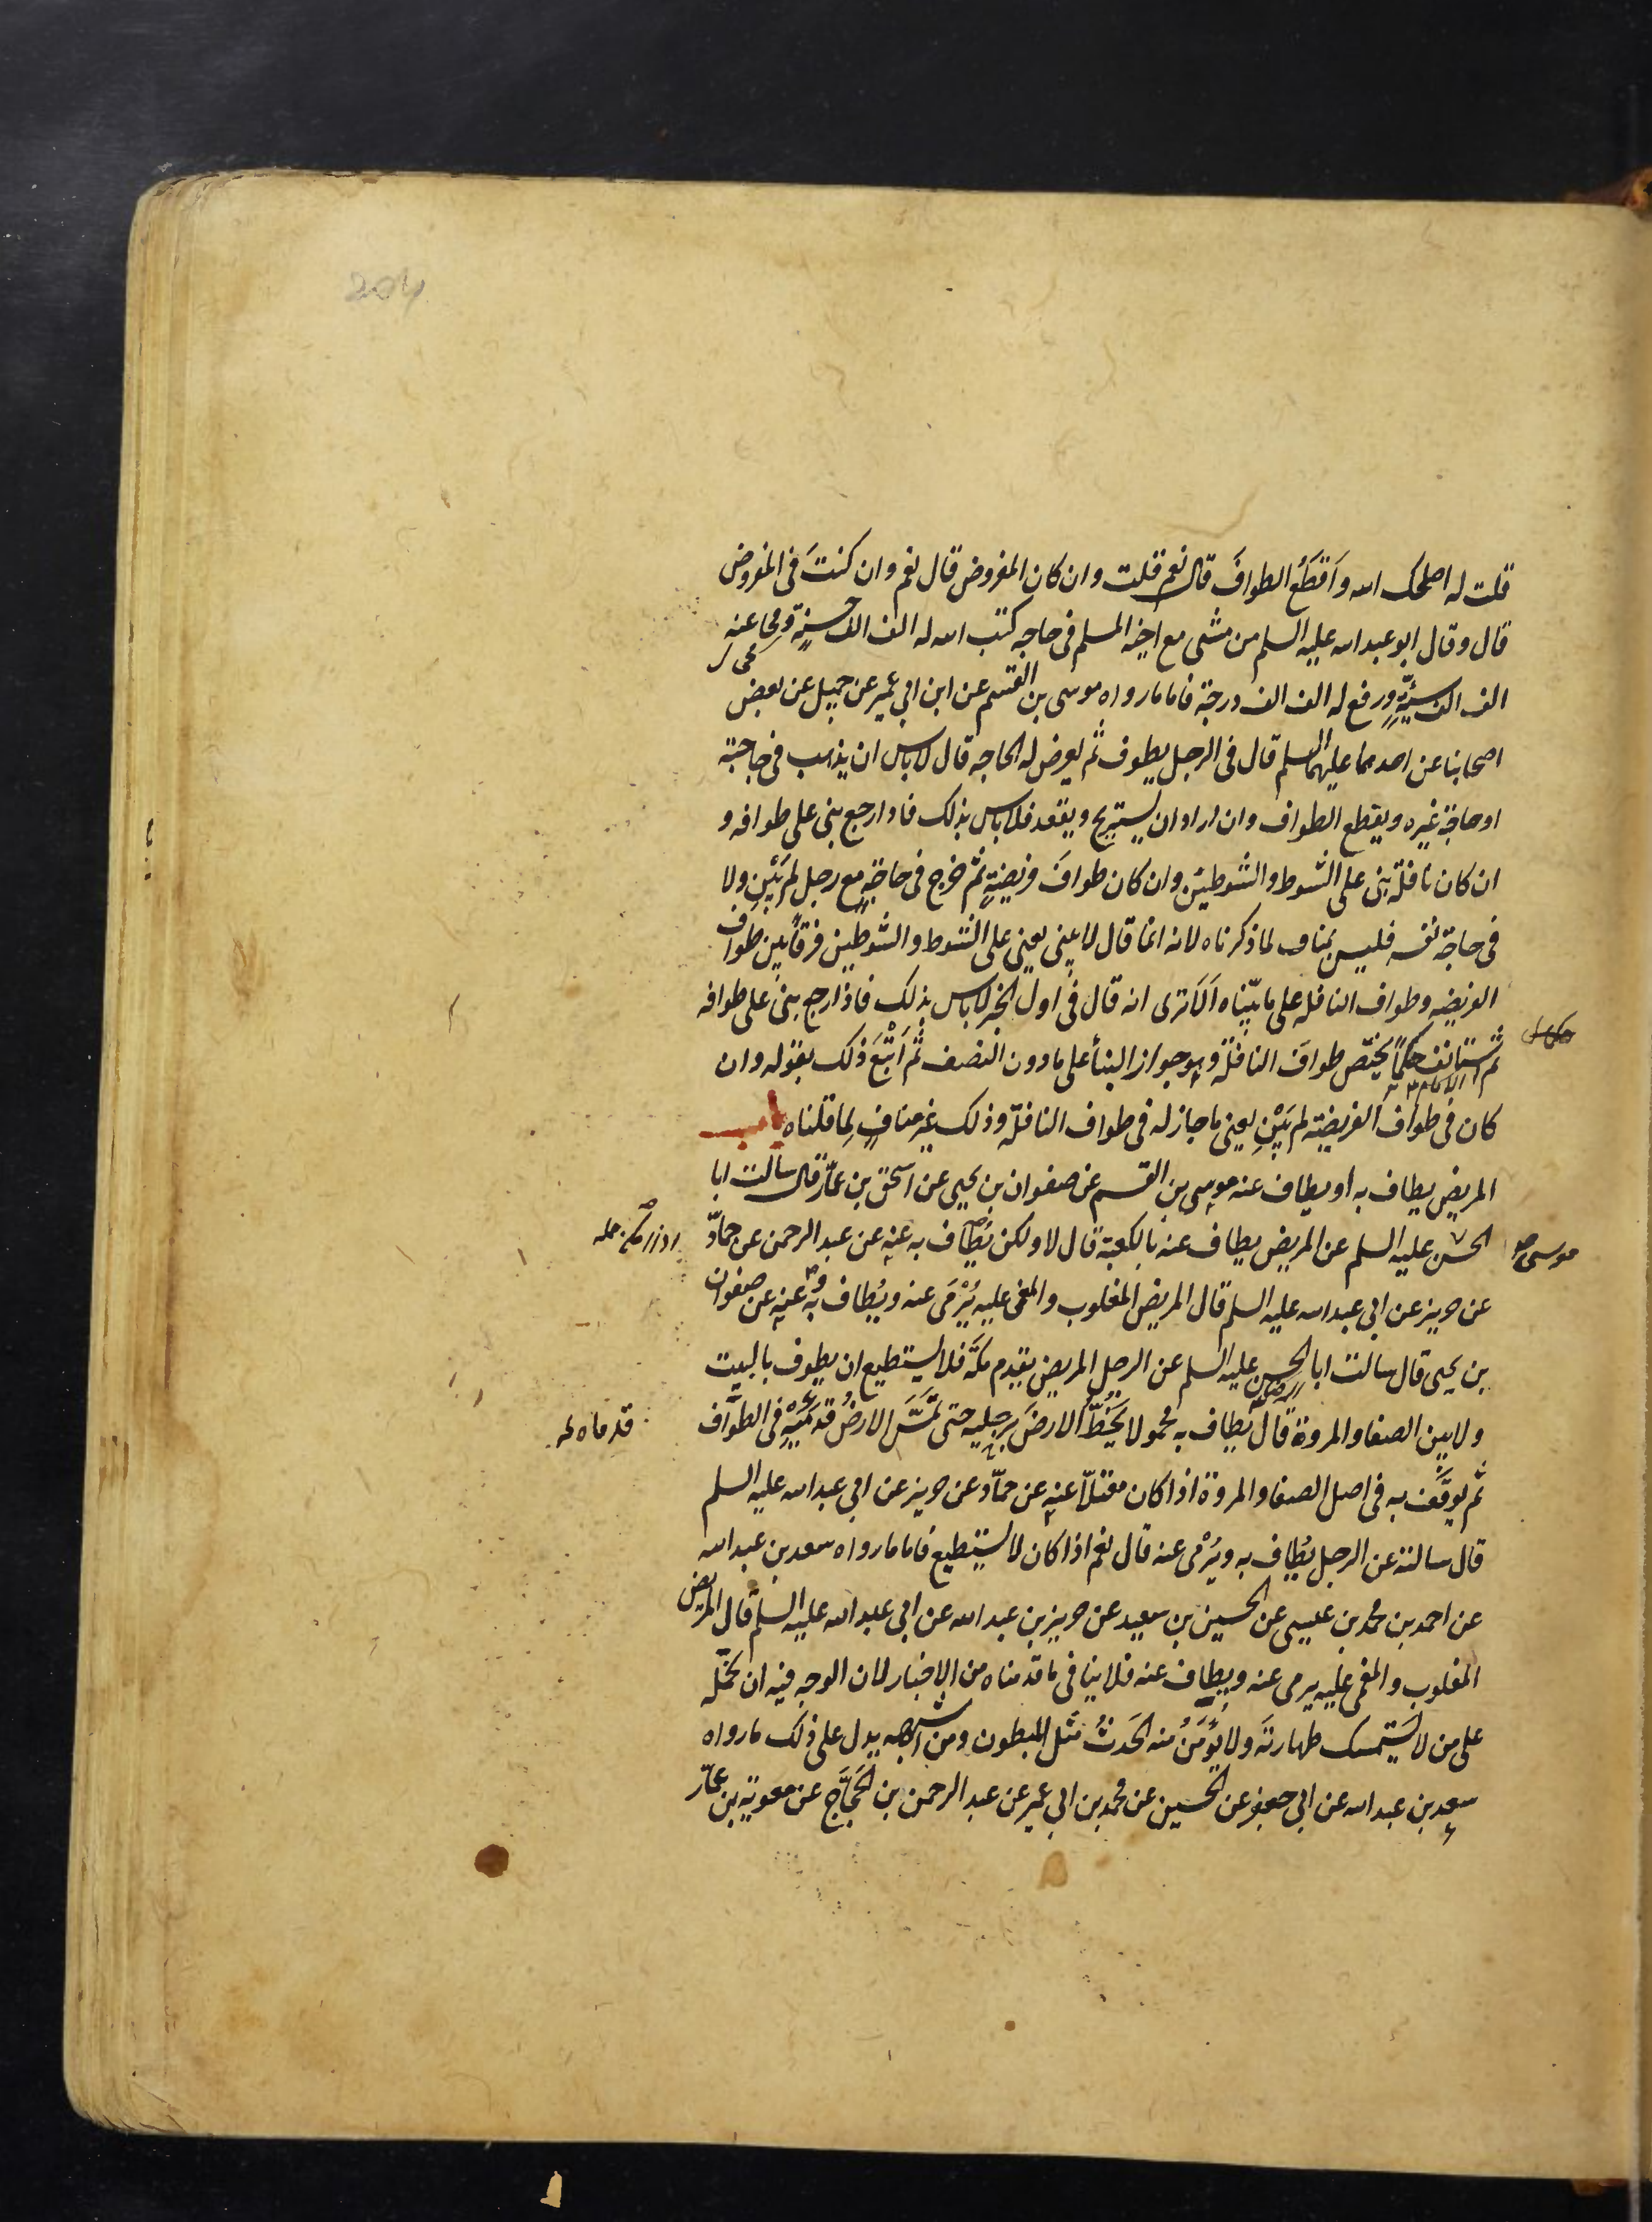 204
قلت له اصلحك الله واَقطَعُ الطوافَ قال نعم قلت وان كان المفروض قال نعم وان كنتَ فى المفروض
قال وقال ابو عبد الله عليه السلم من مشى مع اخيه المسلم فى حاجه كتب الله له الف الف حسنةٍ ومحا عنه
الف الف سيّئةٍ ورفع له الف الف درجة فاما ما رواه موسى بن القسم عن ابن ابي عمير عن جميل عن بعض
اصحابنا عن احدهما عليهما السلم قال فى الرجل يطوف ثم يعرض له الحاجه قال لا باس ان يذهب فى حاجته
او حاجة غيره ويقطع الطواف وان اراد ان يستريح ويقعد فلا باس بذلك فاذا رجع بنى على طوافه و
ان كان نافلة بنى على الشوط والشوطين وان كان طوافَ فريضةٍ ثم خرج فى حاجةٍ مع رجل لم يَبْنِ ولا
فى حاجة نفسه فليس بمناف لما ذكرناه لانه انما قال لا يبنى يعنى على الشوط والشوطين فرقًا بين طواف
الفريضه وطواف النافله على ما بيّناه اَلَا ترى انه قال فى اول الخبر لا باس بذلك فاذا رجع بنى على طوافه
ثم استانف حكمًا يختص طوافَ النافلة وهو جواز البنأ على ما دون النصف ثم اَتْبَعَ ذلك بقوله وان
كان فى طواف الفريضة لم يَبْنِ يعنى ما جاز له فى طواف النافلة وذلك غير منافٍ لِما قلناه باب
المريض يطاف به او يطاف عنه موسى بن القسم عن صفوان بن يحيى عن اسحق بن عمّار قال سالت ابا
الحسن عليه السلم عن المريض يطاف عنه بالكعبة قال لا ولكن يُطاف به عنه عن عبد الرحمن عن حمّاد
موسى
عن حريز عن ابى عبد الله عليه السلم قال المريض المغلوب والمغمى عليه يُرْمَى عنه ويُطاف به عنه عن صفوان
بن يحيى قال سالت ابا الحسن عليه السلم عن الرجل المريض يقدم مكّة فلا يستطيع ان يطوف بالبيت
ولا بين الصفا والمروة قال يُطاف به محمولا يَخُطُّ الارضَ برجليه حتى تمَسَّ الارضُ قدمَيْهِ فى الطواف
قدماه
ثم يوقَف به فى اصل الصفا والمروة اذا كان معتلّا عنه عن حمّاد عن حريز عن ابى عبد الله عليه السلم
قال سالته عن الرجل يُطاف به ويُرْمى عنه قال نعم اذا كان لا يستطيع فاما ما رواه سعد بن عبد الله
عن احمد بن محمد بن عيسى عن الحسين بن سعيد عن حريز بن عبد الله عن ابى عبد الله عليه السلم قال المريض
المغلوب والمغمى عليه يرمى عنه ويطاف عنه فلا ينافى ما قدمناه من الاخبار لان الوجه فيه ان نحمله
على من لا يَستمسك طهارتَه ولا يُؤمَنُ منه الحَدثُ مثل المبطون ومن اشبهه يدل على ذلك ما رواه
سعد بن عبد الله عن ابى جعفر عن الحسين عن محمد بن ابى عمير عن عبد الرحمن بن الحَجّاج عن معوية بن عمّار